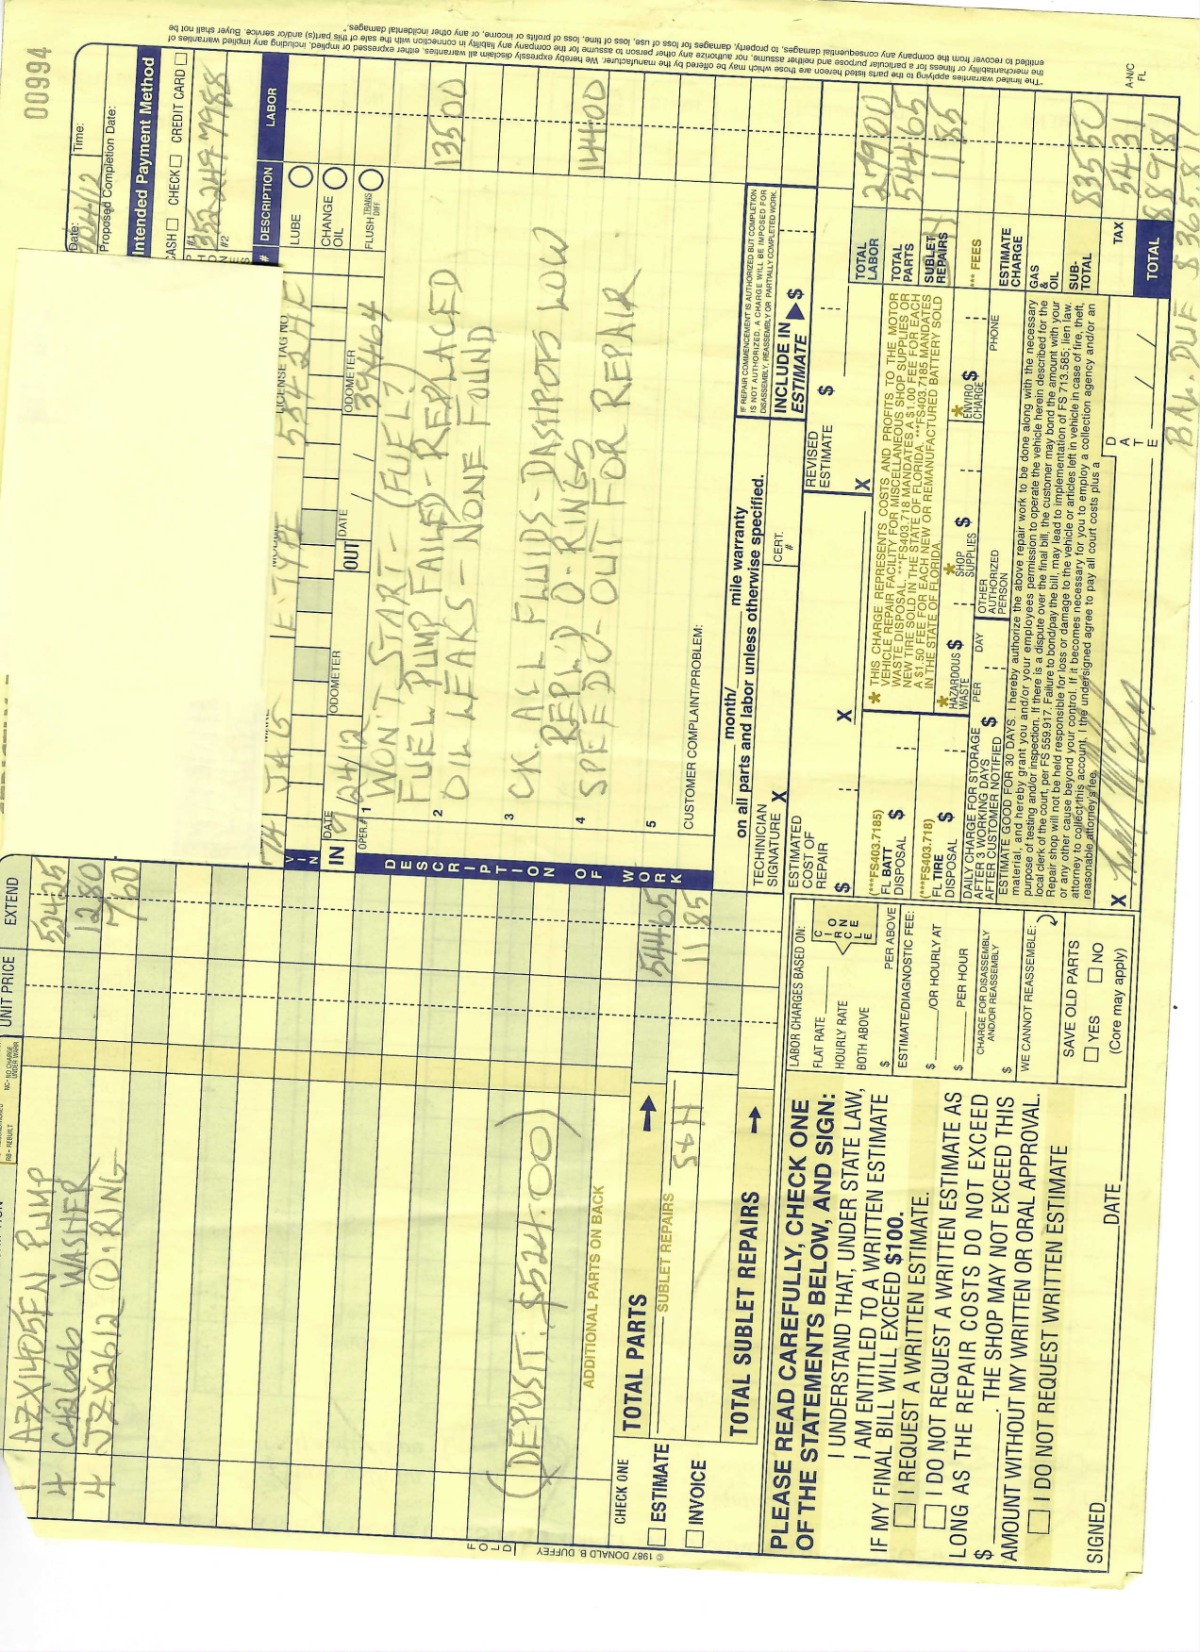 00994
Date: Time:
9/24/12
Proposed Completion Date:
Intended Payment Method
CASH CHECK CREDIT CARD
#1 352 247 7988
#2
UNIT PRICE EXTEND
1 AZX1405FN PUMP 524 25
4 C42666 WASHER 12 80
4 JZX2612 O-RING 7 60
(DEPOSIT: $524.00)
ADDITIONAL PARTS ON BACK
CHECK ONE
ESTIMATE
INVOICE
TOTAL PARTS 544 65
SUBLET REPAIRS S+H 11 85
TOTAL SUBLET REPAIRS
LICENSE TAG NO.
'74 JAG E-TYPE 1584 2HF
VIN
IN DATE 9/24/12 ODOMETER OUT DATE / / ODOMETER 39464
DESCRIPTION LABOR
LUBE
CHANGE OIL
FLUSH TRANS DIFF.
OPER.#
DESCRIPTION OF WORK
1 WON'T START - (FUEL?)
FUEL PUMP FAILED - REPLACED 135 00
2 OIL LEAKS - NONE FOUND
3 CK. ALL FLUIDS - DASHPOTS LOW
REPL'D O-RINGS 144 00
4 SPEEDO - OUT FOR REPAIR
5
CUSTOMER COMPLAINT/PROBLEM:
month/ mile warranty
on all parts and labor unless otherwise specified.
TECHINICIAN SIGNATURE X CERT. #
IF REPAIR COMMENCEMENT IS AUTHORIZED BUT COMPLETION
IS NOT AUTHORIZED, A CHARGE WILL BE IMPOSED FOR
DISASSEMBLY, REASSEMBLY OR PARTIALLY COMPLETED WORK.
INCLUDE IN ESTIMATE $
ESTIMATED COST OF REPAIR $ X
REVISED ESTIMATE $ X
(***FS403.7185)
FL BATT DISPOSAL $
(***FS403.718)
FL TIRE DISPOSAL $
* THIS CHARGE REPRESENTS COSTS AND PROFITS TO THE MOTOR
VEHICLE REPAIR FACILITY FOR MISCELLANEOUS SHOP SUPPLIES OR
WASTE DISPOSAL. ***FS403.718 MANDATES A $1.00 FEE FOR EACH
NEW TIRE SOLD IN THE STATE OF FLORIDA. ***FS403.7185 MANDATES
A $1.50 FEE FOR EACH NEW OR REMANUFACTURED BATTERY SOLD
IN THE STATE OF FLORIDA.
* HAZARDOUS WASTE $ * SHOP SUPPLIES $ * ENVIRO CHARGE $
DAILY CHARGE FOR STORAGE
AFTER 3 WORKING DAYS
AFTER CUSTOMER NOTIFIED $ PER DAY
OTHER AUTHORIZED PERSON PHONE
ESTIMATE GOOD FOR 30 DAYS. I hereby authorize the above repair work to be done along with the necessary
material, and hereby grant you and/or your employees permission to operate the vehicle herein described for the
purpose of testing and/or inspection. If there is a dispute over the final bill, the customer may bond the amount with your
local clerk of the court, per FS 559.917. Failure to bond/pay the bill, may lead to implementation of FS 713.585; lien law.
Repair shop will not be held responsible for loss or damage to the vehicle or articles left in vehicle in case of fire, theft,
or any other cause beyond your control. If it becomes necessary for you to employ a collection agency and/or an
attorney to collect this account, I the undersigned agree to pay all court costs plus a
reasonable attorney's fee.
X DATE / /
TOTAL LABOR 279 00
TOTAL PARTS 544 65
SUBLET REPAIRS 11 85
*** FEES
ESTIMATE CHARGE
GAS & OIL
SUB-TOTAL 835 50
TAX 54 31
TOTAL 889 81
BAL. DUE $365.81
A-N/C
FL
LABOR CHARGES BASED ON:
FLAT RATE
HOURLY RATE
BOTH ABOVE
CIRCLE ONE
$ PER ABOVE
ESTIMATE/DIAGNOSTIC FEE:
$ /OR HOURLY AT
$ PER HOUR
CHARGE FOR DISASSEMBLY AND/OR REASSEMBLY
$
WE CANNOT REASSEMBLE:
SAVE OLD PARTS
YES NO
(Core may apply)
PLEASE READ CAREFULLY, CHECK ONE
OF THE STATEMENTS BELOW, AND SIGN:
I UNDERSTAND THAT, UNDER STATE LAW,
I AM ENTITLED TO A WRITTEN ESTIMATE
IF MY FINAL BILL WILL EXCEED $100.
I REQUEST A WRITTEN ESTIMATE.
I DO NOT REQUEST A WRITTEN ESTIMATE AS
LONG AS THE REPAIR COSTS DO NOT EXCEED
$ . THE SHOP MAY NOT EXCEED THIS
AMOUNT WITHOUT MY WRITTEN OR ORAL APPROVAL.
I DO NOT REQUEST WRITTEN ESTIMATE
SIGNED DATE
© 1987 DONALD B. DUFFEY
FOLD
The limited warranties applying to the parts listed hereon are those which may be offered by the manufacturer. We hereby expressly disclaim all warranties, either expressed or implied, including any implied warranties of
the merchantability or fitness for a particular purpose and neither assume, nor authorize any other person to assume for the company any liability in connection with the sale of this part(s) and/or service. Buyer shall not be
entitled to recover from the company any consequential damages, to property, damages for loss of use, loss of time, loss of profits or income, or any other incidental damages."